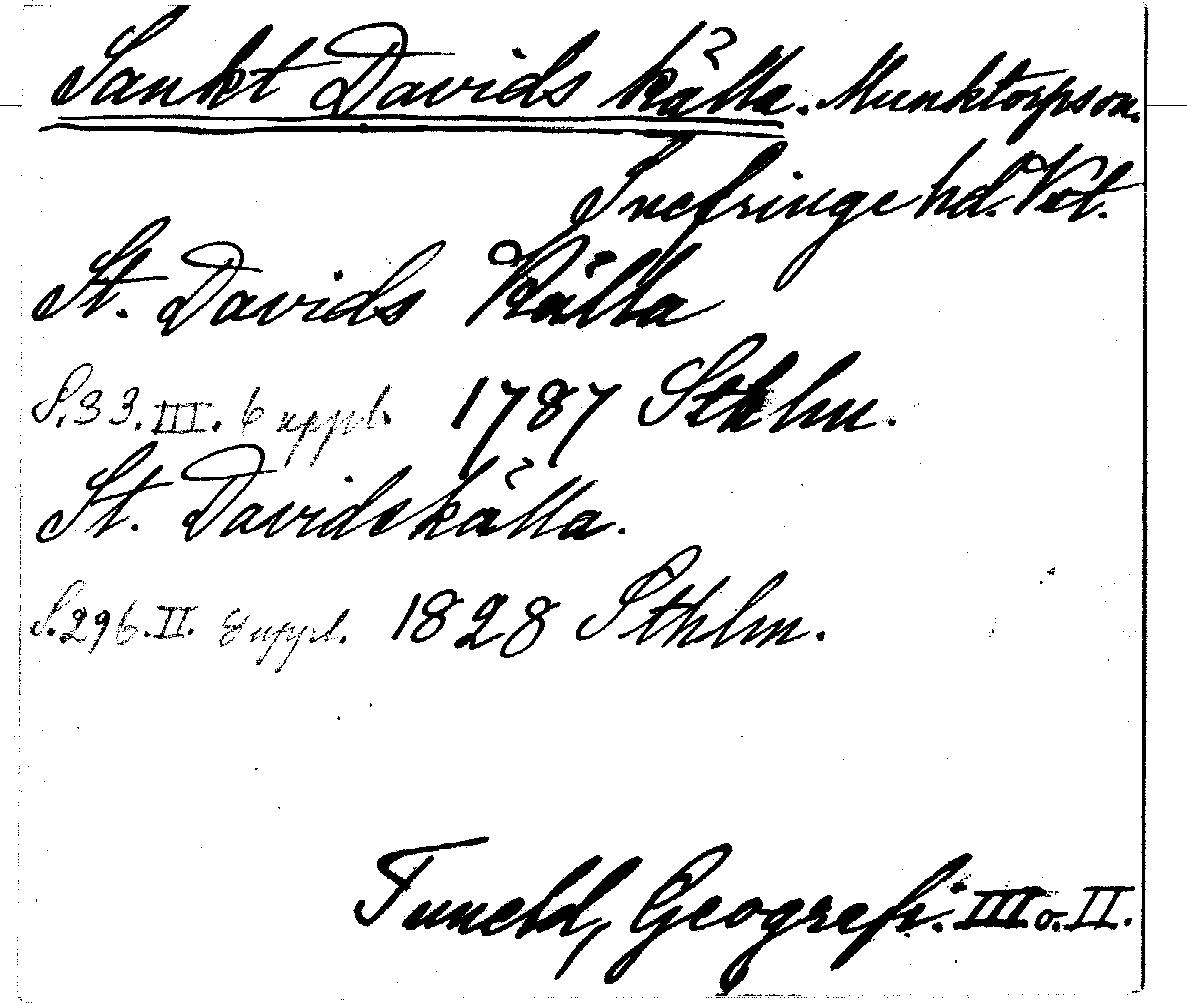 Sankt Davids källa. Munktorps sn.
Snefringe hd. Vstl.
St. Davids Källa
S. 33. III. 6 uppl. 1787 Sthlm.
St. Davidskälla.
S. 296. II. 8 uppl. 1828 Sthlm.
Tuneld, Geografi. III o. II.